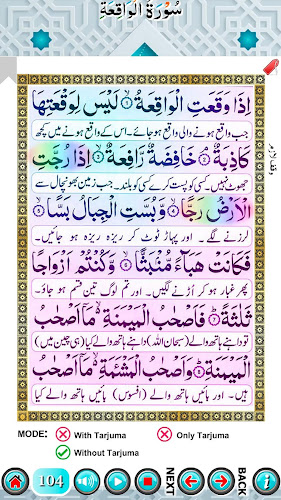 سُوْرَةُ الْوَاقِعَةِ
اِذَا وَقَعَتِ الْوَاقِعَةُ ۙ۝۱ لَيْسَ لِوَقْعَتِهَا
جب واقع ہونے والی واقع ہو جائے۔ اس کے واقع ہونے میں کچھ
كَاذِبَةٌ ۘ۝۲ خَافِضَةٌ رَّافِعَةٌ ۙ۝۳ اِذَا رُجَّتِ
جھوٹ نہیں۔ کسی کو پست کرے کسی کو بلند۔ جب زمین بھونچال سے
الْاَرْضُ رَجًّا ۙ۝۴ وَّبُسَّتِ الْجِبَالُ بَسًّا ۙ۝۵
لرزنے لگے۔ اور پہاڑ ٹوٹ کر ریزہ ریزہ ہو جائیں۔
فَكَانَتْ هَبَآءً مُّنْۢبَثًّا ۙ۝۶ وَّكُنْتُمْ اَزْوَاجًا
پھر غبار ہو کر اُڑنے لگیں۔ اور تم لوگ تین قسم ہو جاؤ۔
ثَلٰثَةً ؕ۝۷ فَاَصْحٰبُ الْمَيْمَنَةِ ۙ۬ مَاۤ اَصْحٰبُ
تو داہنے ہاتھ والے (سبحان اللہ) داہنے ہاتھ والے کیا (ہی چین میں)
الْمَيْمَنَةِ ؕ۝۸ وَاَصْحٰبُ الْمَشْـَٔمَةِ ۙ۬ مَاۤ اَصْحٰبُ
ہیں۔ اور بائیں ہاتھ والے (افسوس) بائیں ہاتھ والے کیا
وقف لازم
MODE: With Tarjuma Only Tarjuma
Without Tarjuma
BACK 104 NEXT